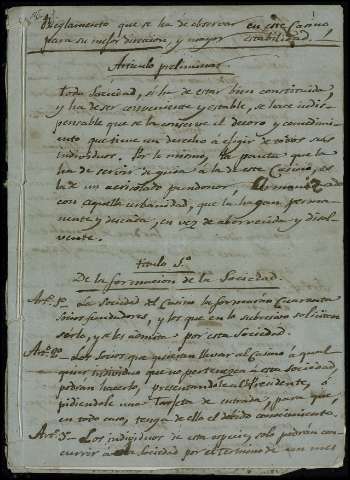 Reglamento que se ha de observar en este Casino,
para su mejor direccion, y mayor estabilidad
Articulo preliminar
Toda Sociedad, si ha de estar bien constituida,
y ha de ser conveniente y estable, se hace indis-
pensable que se la conserve el decoro y comedimi-
ento que tiene un derecho á exigir de todos sus
individuos. Por lo mismo, la pauta que la
ha de servir de guia á la de este Casino, es
la de un acrisolado pundonor, armonizado
con aquella urbanidad, que la hagan perma-
nente y deseada, en vez de aborrecida y disol-
vente.
Titulo 1º
De la formacion de la Sociedad.
Artº 1º La Sociedad del Casino la formarán Cuarenta
Socios fundadores, y los que en lo subcesivo soliciten
serlo, y se les admita por esta Sociedad.
Artº 2º Los Socios que quieran llevar al Casino á qual
quier individuo que no pertenezca á esta Sociedad,
podrán hacerlo, presentandole al Presidente, ó
pidiendole una Tarjeta de entrada, para que,
en todo caso, tenga de ello el debido conocimiento.
Artº 3º Los individuos de esta especie, solo podrán con-
currir á la Sociedad por el termino de un mes